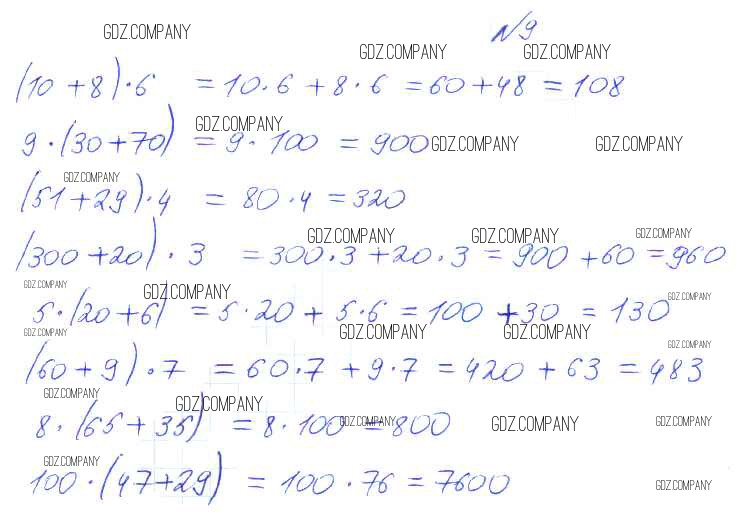 GDZ.COMPANY №9
GDZ.COMPANY GDZ.COMPANY
(10 + 8) · 6 = 10 · 6 + 8 · 6 = 60 + 48 = 108
GDZ.COMPANY
9 · (30 + 70) = 9 · 100 = 900 GDZ.COMPANY GDZ.COMPANY
GDZ.COMPANY
(51 + 29) · 4 = 80 · 4 = 320
GDZ.COMPANY GDZ.COMPANY GDZ.COMPANY
(300 + 20) · 3 = 300 · 3 + 20 · 3 = 900 + 60 = 960
GDZ.COMPANY GDZ.COMPANY GDZ.COMPANY
5 · (20 + 6) = 5 · 20 + 5 · 6 = 100 + 30 = 130
GDZ.COMPANY GDZ.COMPANY GDZ.COMPANY GDZ.COMPANY
(60 + 9) · 7 = 60 · 7 + 9 · 7 = 420 + 63 = 483
GDZ.COMPANY GDZ.COMPANY
8 · (65 + 35) = 8 · 100 = 800
GDZ.COMPANY GDZ.COMPANY GDZ.COMPANY
GDZ.COMPANY
100 · (47 + 29) = 100 · 76 = 7600
GDZ.COMPANY